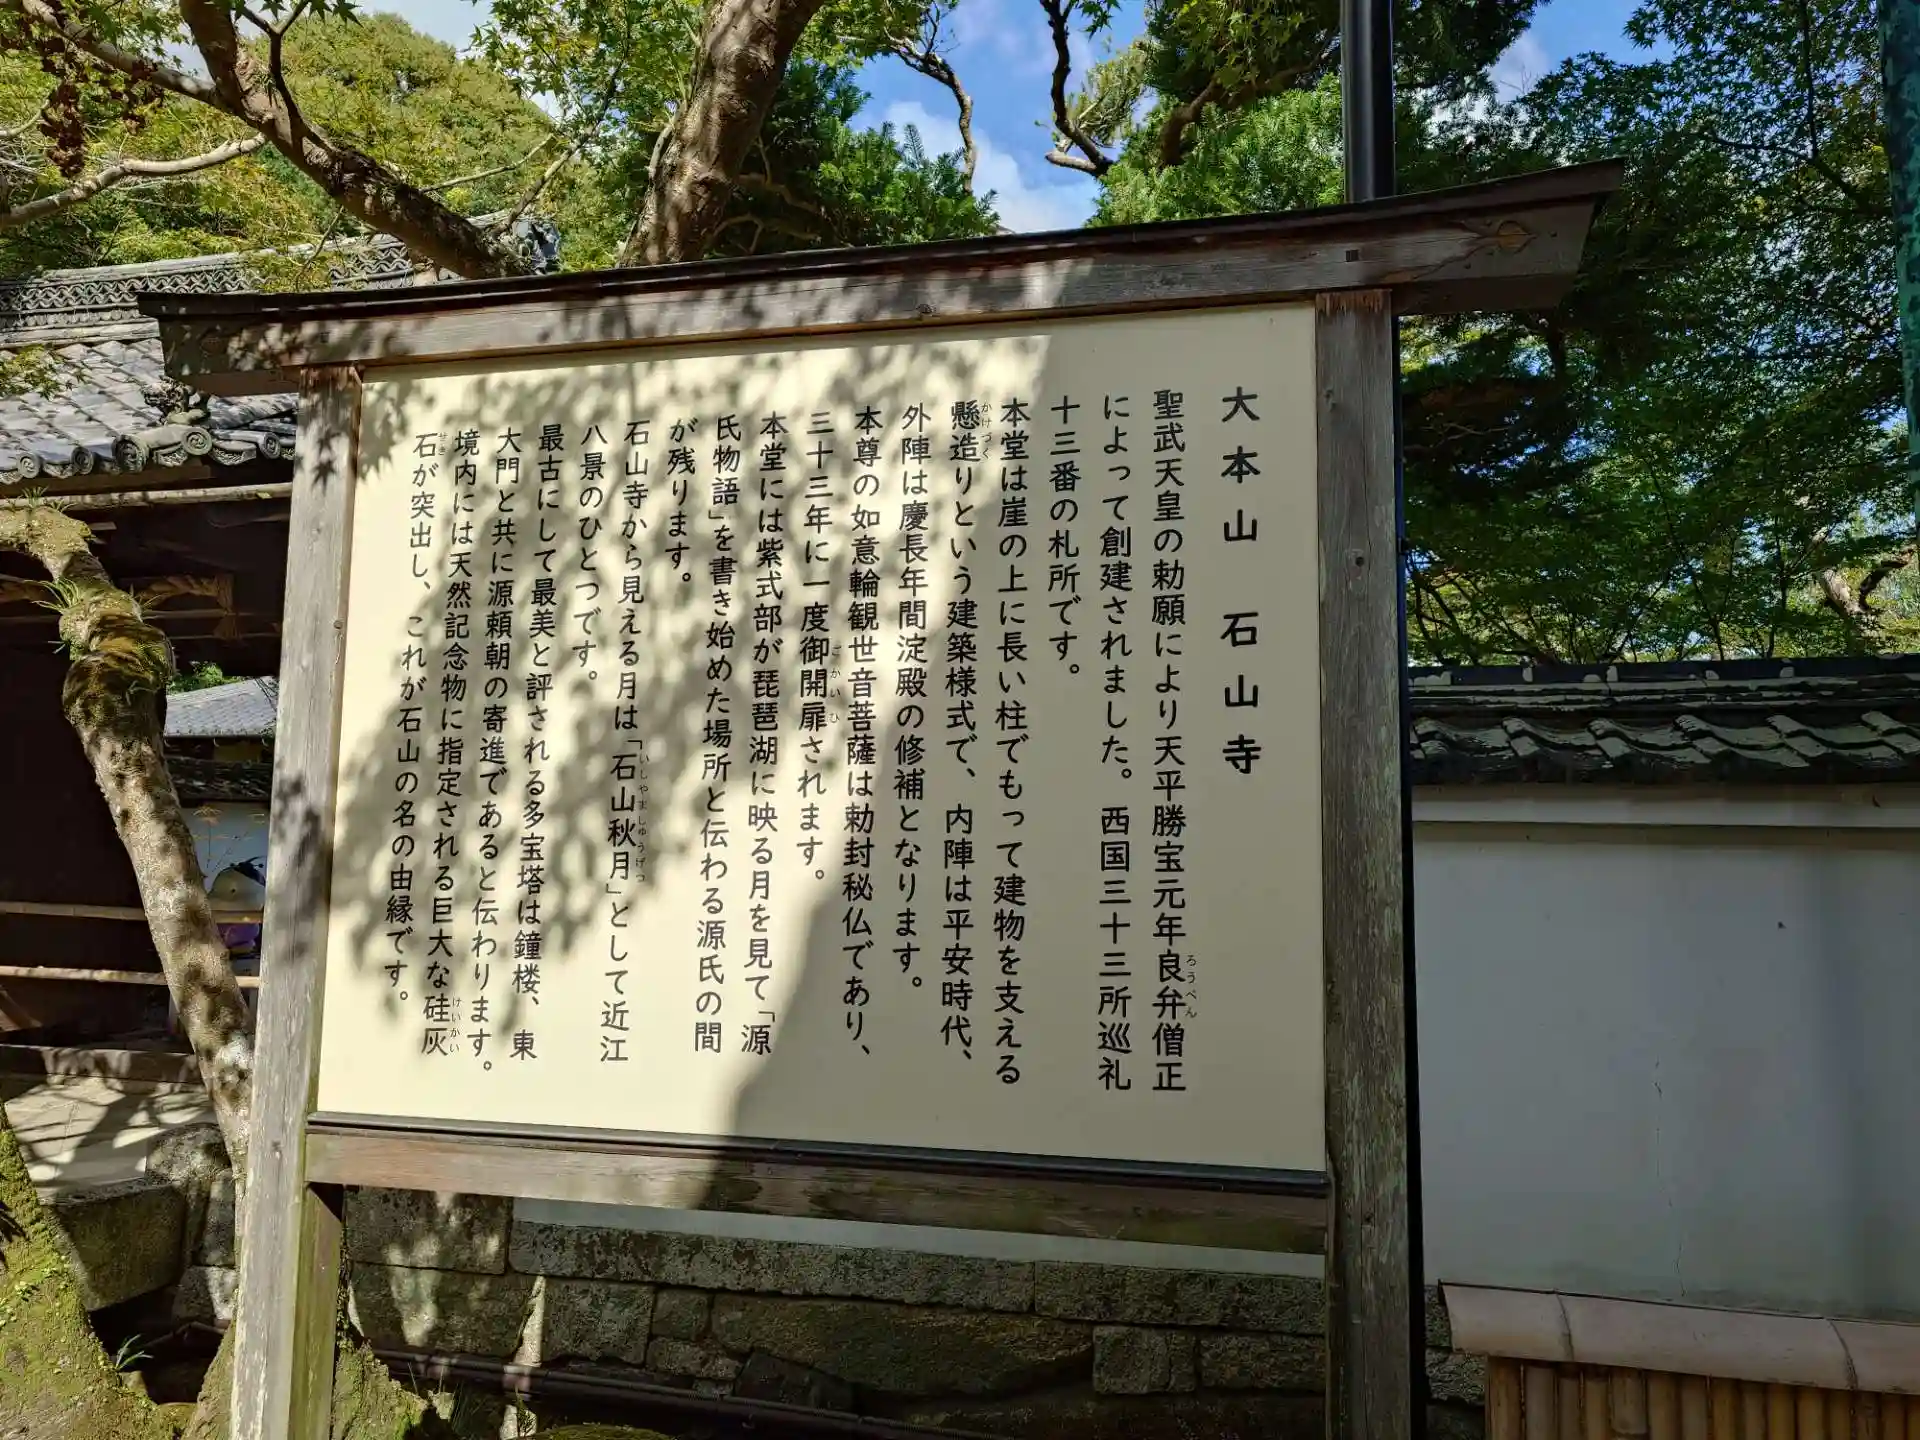 大本山 石山寺
聖武天皇の勅願により天平勝宝元年良弁僧正
ろうべん
によって創建されました。西国三十三所巡礼
十三番の札所です。
本堂は崖の上に長い柱でもって建物を支える
懸造りという建築様式で、内陣は平安時代、
かけづく
外陣は慶長年間淀殿の修補となります。
本尊の如意輪観世音菩薩は勅封秘仏であり、
三十三年に一度御開扉されます。
ごかいひ
本堂には紫式部が琵琶湖に映る月を見て「源
氏物語」を書き始めた場所と伝わる源氏の間
が残ります。
石山寺から見える月は「石山秋月」として近江
いしやましゅうげつ
八景のひとつです。
最古にして最美と評される多宝塔は鐘楼、東
大門と共に源頼朝の寄進であると伝わります。
境内には天然記念物に指定される巨大な硅灰
けいかい
石が突出し、これが石山の名の由縁です。
せき